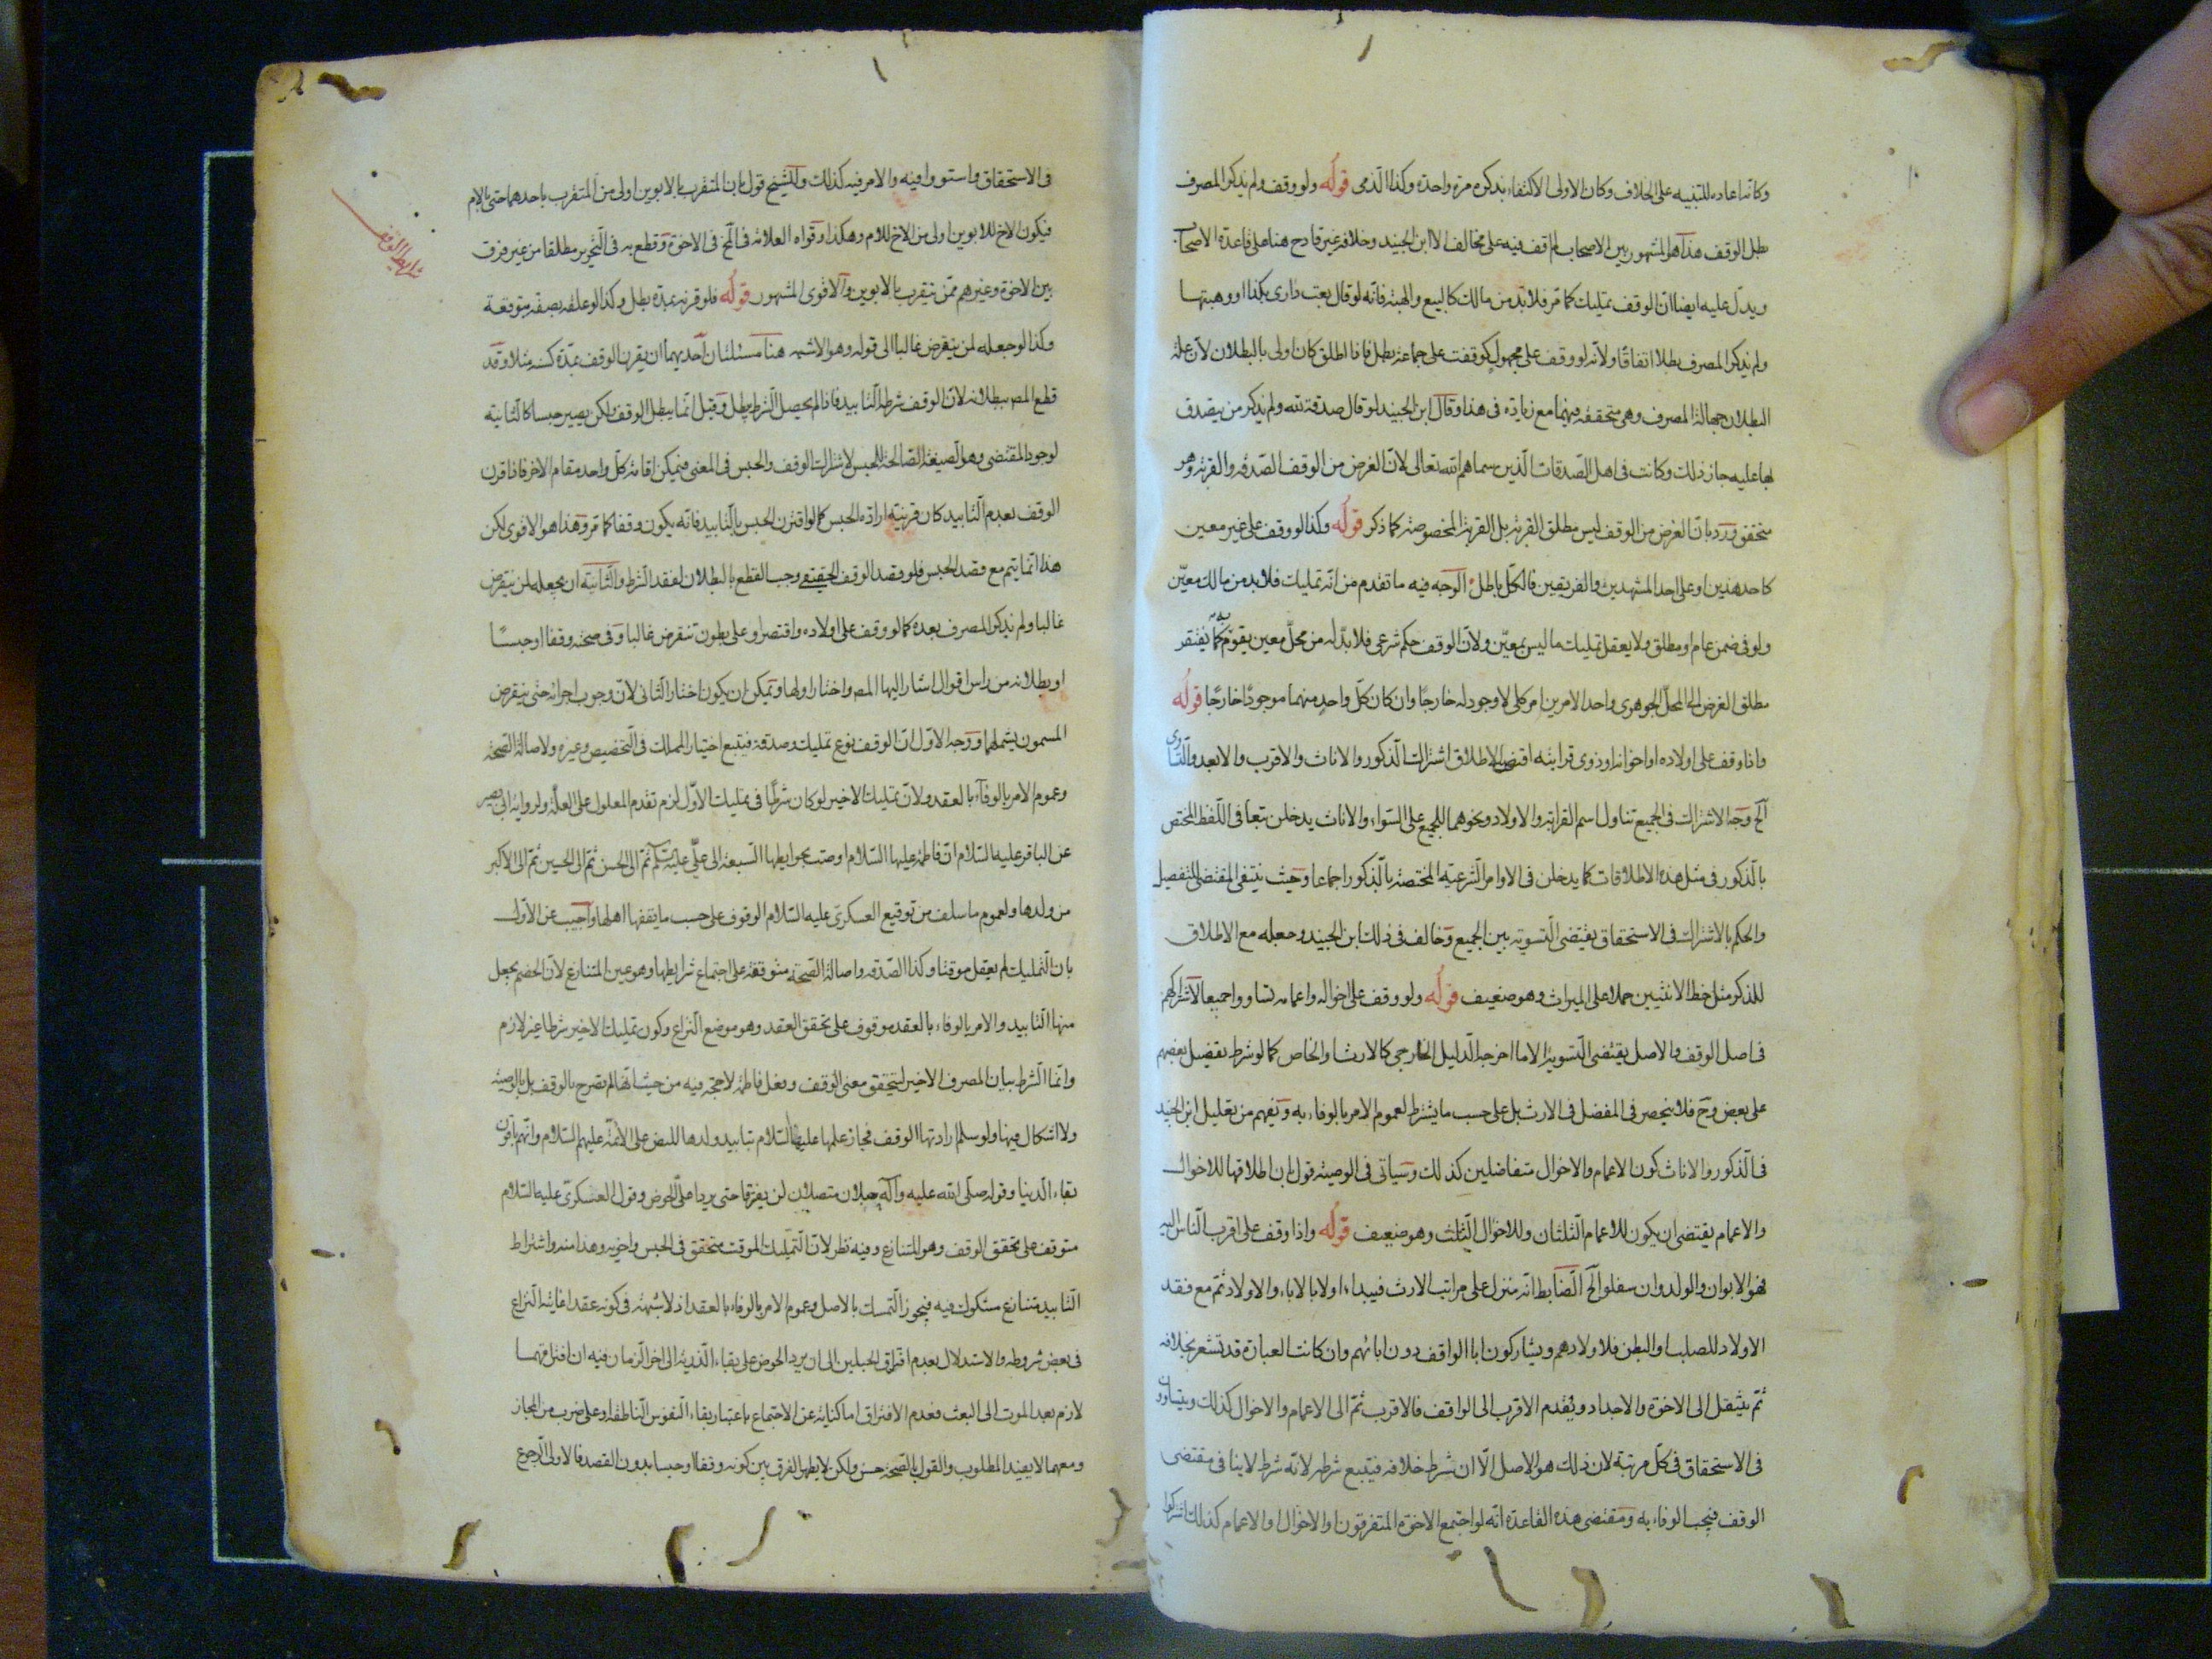 وكانه اعاده للتنبيه على الخلاف وكان الاولى الاكتفاء بذكره مرة واحدة وكذا الذمى قوله ولو وقف ولم يذكر المصرف
بطل الوقف هذا هو المشهور بين الاصحاب لم اقف فيه على مخالف الا ابن الجنيد وخلافه غير قادح هنا على قاعدة الاصحاب
ويدل عليه ايضا ان الوقف تمليك كما مر فلا بد من مالك كالبيع والهبة فانه لو قال بعت دارى بكذا او وهبتها
ولم يذكر المصرف بطلا اتفاقا ولانه لو وقف على مجهول كوقفت على جماعة بطل فاذا اطلق كان اولى بالبطلان لان علة
البطلان جهالة المصرف وهى متحققه فيهما مع زيادة فى هذا وقال ابن الجنيد لو قال صدقة لله ولم يذكر من يتصدق
بها عليه جاز ذلك وكانت فى اهل الصدقات الذين سماهم الله تعالى لان الغرض من الوقف الصدقه والقربة وهو
متحقق ورد بان الغرض من الوقف ليس مطلق القربة بل القربة المخصوصة كما ذكر قوله وكذا لو وقف على غير معين
كاحد هذين او على احد المشهدين والفريقين فالكل باطل الوجه فيه ما تقدم من انه تمليك فلا بد من مالك معين
ولو فى ضمن عام او مطلق ولا يعقل تمليك ما ليس بمعين ولان الوقف حكم شرعى فلا بد له من محل معين يقوم به كما يفتقر
مطلق العرض الى المحل الجوهرى واحد الامرين امر كلى لا وجود له خارجا وان كان كل واحد منهما موجودا خارجا قوله
واذا وقف على اولاده او اخوانه او ذوى قرابته اقتضى الاطلاق اشتراك الذكور والاناث والاقرب والابعد والتساوى
الخ وجه الاشتراك فى الجميع تناول اسم القرابة والاولاد ونحوهما للجميع على السواء والاناث يدخلن تبعا فى اللفظ المختص
بالذكور فى مثل هذه الاطلاقات كما يدخلن فى الاوامر الشرعية المختصة بالذكور اجماعا وحيث ينتفى المقتضى للتفصيل
والحكم بالاشتراك فى الاستحقاق يقتضى التسوية بين الجميع وخالف فى ذلك ابن الجنيد وجعله مع الاطلاق
للذكر مثل حظ الانثيين حملا على الميراث وهو ضعيف قوله ولو وقف على اخواله واعمامه تساووا جميعا لاشتراكهم
فى اصل الوقف والاصل يقتضى التسوية الا ما اخرجه الدليل الخارجى كالارث او الخاص كما لو شرط تفضيل بعضهم
على بعض وح فلا ينحصر فى المفضل فى الارث بل على حسب ما يشترط لعموم الامر بالوفاء به ويفهم من تعليل ابن الجنيد
فى الذكور والاناث كون الاعمام والاخوال متفاضلين كذلك وسياتى فى الوصية قول بان اطلاقها للاخوال
والاعمام يقتضى ان يكون للاعمام الثلثان وللاخوال الثلث وهو ضعيف قوله واذا وقف على اقرب الناس اليه
فهو الابوان والولد وان سفلوا الخ الضابط انه منزل على مراتب الارث فيبداء اولا بالاباء والاولاد ثم مع فقد
الاولاد للصلب او البطن فلاولادهم ويشاركون ابا الواقف دون ابائهم وان كانت العبارة قد تشعر بخلافه
ثم ينتقل الى الاخوة والاجداد ويقدم الاقرب الى الواقف فالاقرب ثم الى الاعمام والاخوال كذلك ويتساوون
فى الاستحقاق فى كل مرتبة لان ذلك هو الاصل الا ان شرط خلافه فيتبع شرطه لانه شرط لا ينافى مقتضى
الوقف فيجب الوفاء به ومقتضى هذه القاعدة انه لو اجتمع الاخوة المتفرقون او الاخوال او الاعمام كذلك اشتركوا
فى الاستحقاق واستووا فيه والامر فيه كذلك وللشيخ قول بان المتقرب بالابوين اولى من المتقرب باحدهما حتى بالام
فيكون الاخ للابوين اولى من الاخ للام وهكذا وقواه العلامة فى لخ فى الاخوة وقطع به فى التحرير مطلقا من غير فرق
بين الاخوة وغيرهم ممن يتقرب بالابوين والاقوى المشهور قوله فلو قرنه بمدة بطل وكذا لو علقه بصفة متوقعة
وكذا لو جعله لمن ينقرض غالبا الى قوله وهو الاشبه هنا مسئلتان احديهما ان يقرن الوقف بمدة كسنة مثلا وقد
قطع المصـ ببطلانه لان الوقف شرطه التابيد فاذا لم يحصل الشرط بطل وقيل انما يبطل الوقف ولكن يصير حبسا كالثانية
لوجود المقتضى وهو الصيغة الصالحة للحبس لاشتراك الوقف والحبس فى المعنى فيمكن اقامة كل واحد مقام الاخر فاذا قرن
الوقف بعدم التابيد كان قرينة ارادة الحبس كما لو اقترن الحبس بالتابيد فانه يكون وقفا كما مر وهذا هو الاقوى لكن
هذا انما يتم مع قصد الحبس فلو قصد الوقف الحقيقى وجب القطع بالبطلان لفقد الشرط والثانية ان يجعله لمن ينقرض
غالبا ولم يذكر المصرف بعده كما لو وقف على اولاده واقتصر او على بطون تنقرض غالبا وفى صحته وقفا او حبسا
او بطلانه من راس اقوال اشار اليها المصـ واختار اولها ويمكن ان يكون اختار الثانى لان وجوب اجرائه حتى ينقرض
المسمون يشملهما ووجه الاول ان الوقف نوع تمليك وصدقة فيتبع اختيار المملك فى التخصيص وغيره ولاصالة الصحة
وعموم الامر بالوفاء بالعقد ولان تمليك الاخير لو كان شرطا فى تمليك الاول لزم تقدم المعلول على العلة ولرواية ابى بصير
عن الباقر عليه السلام ان فاطمة عليها السلام اوصت بحوايطها السبعة الى على عليه السلم ثم الى الحسن ثم الى الحسين ثم الى الاكبر
من ولدها ولعموم ما سلف من توقيع العسكرى عليه السلام الوقوف على حسب ما يقفها اهلها واجيب عن الاول
بان التمليك لم يعقل موقتا وكذا الصدقه واصالة الصحة متوقفة على اجتماع شرايطها وهو عين المتنازع لان الخصم يجعل
منها التابيد والامر بالوفاء بالعقد موقوف على تحقق العقد وهو موضع النزاع وكون تمليك الاخير شرطا غير لازم
وانما الشرط بيان المصرف الاخير ليتحقق معنى الوقف وفعل فاطمة لا حجة فيه من حيث انها لم تصرح بالوقف بل بالوصية
ولا اشكال فيها ولو سلم ارادتها الوقف فجاز علمها عليها السلام بتابيد ولدها للنص على الائمة عليهم السلام وانهم باقون
بقاء الدنيا وقوله صلى الله عليه وآله حبلان متصلان لن يفترقا حتى يردا على الحوض وقول العسكرى عليه السلام
متوقف على تحقق الوقف وهو المتنازع وفيه نظر لان التمليك الموقت متحقق فى الحبس واخويه وهذا منه واشتراط
التابيد متنازع مشكوك فيه فيجوز التمسك بالاصل وعموم الامر بالوفاء بالعقد اذ لا شبهة فى كونه عقدا غايته النزاع
فى بعض شروطه والاستدلال بعدم افتراق الحبلين الى ان يردا الحوض على بقاء الذرية الى اخر الزمان فيه ان افتراقهما
لازم بعد الموت الى البعث فعدم الافتراق اما كناية عن الاجتماع باعتبار بقاء النفوس الناطقة او على ضرب من المجاز
ومعهما لا يفيد المطلوب والقول بالصحة حسن ولكن لا يظهر الفرق بين كونه وقفا او حبسا بدون القصد فالاولى الرجوع